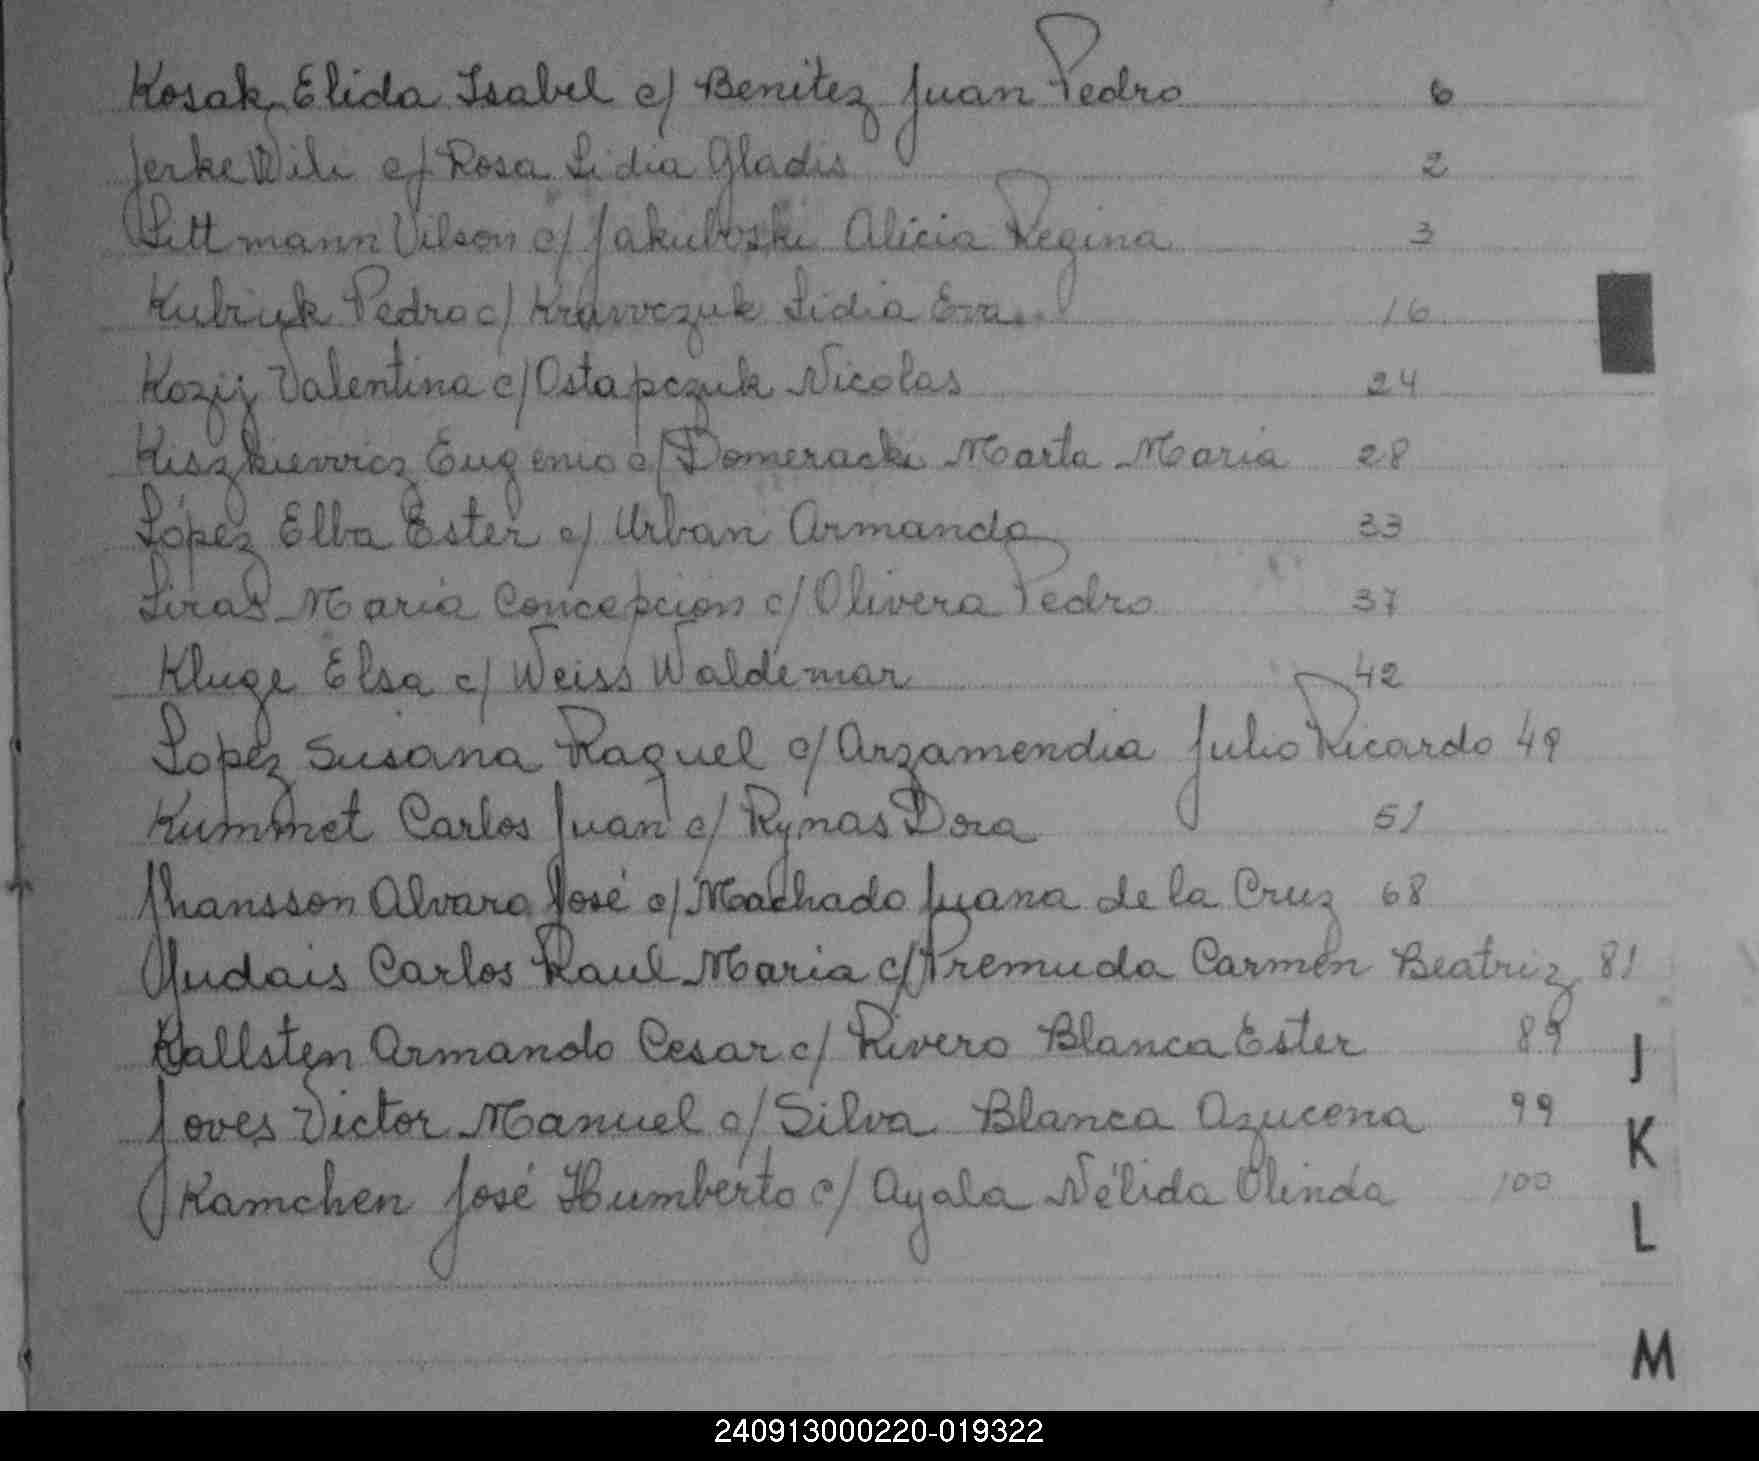 Kosak Elida Isabel c/ Benitez Juan Pedro 6
Jerke Wili c/ Rosa Lidia Gladis 2
Littmann Vilson c/ Jakuboski Alicia Regina 3
Kubiuk Pedro c/ Krawczuk Lidia Eva 16
Kozij Valentina c/ Ostapczuk Nicolas 24
Kiszkievicz Eugenio c/ Domeracki Marta Maria 28
López Elba Ester c/ Urban Armando 33
Liras Maria Concepcion c/ Olivera Pedro 37
Kluge Elsa c/ Weiss Waldemar 42
Lopez Susana Raquel c/ Arzamendia Julio Ricardo 49
Kummet Carlos Juan c/ Rynas Dora 51
Jhansson Alvaro José c/ Machado Juana de la Cruz 68
Yudais Carlos Raul Maria c/ Premuda Carmen Beatriz 81
Kallsten Armando Cesar c/ Rivero Blanca Ester 89
Joves Victor Manuel c/ Silva Blanca Azucena 99
Kamchen José Humberto c/ Ayala Nélida Olinda 100
J
K
L
M
240913000220-019322